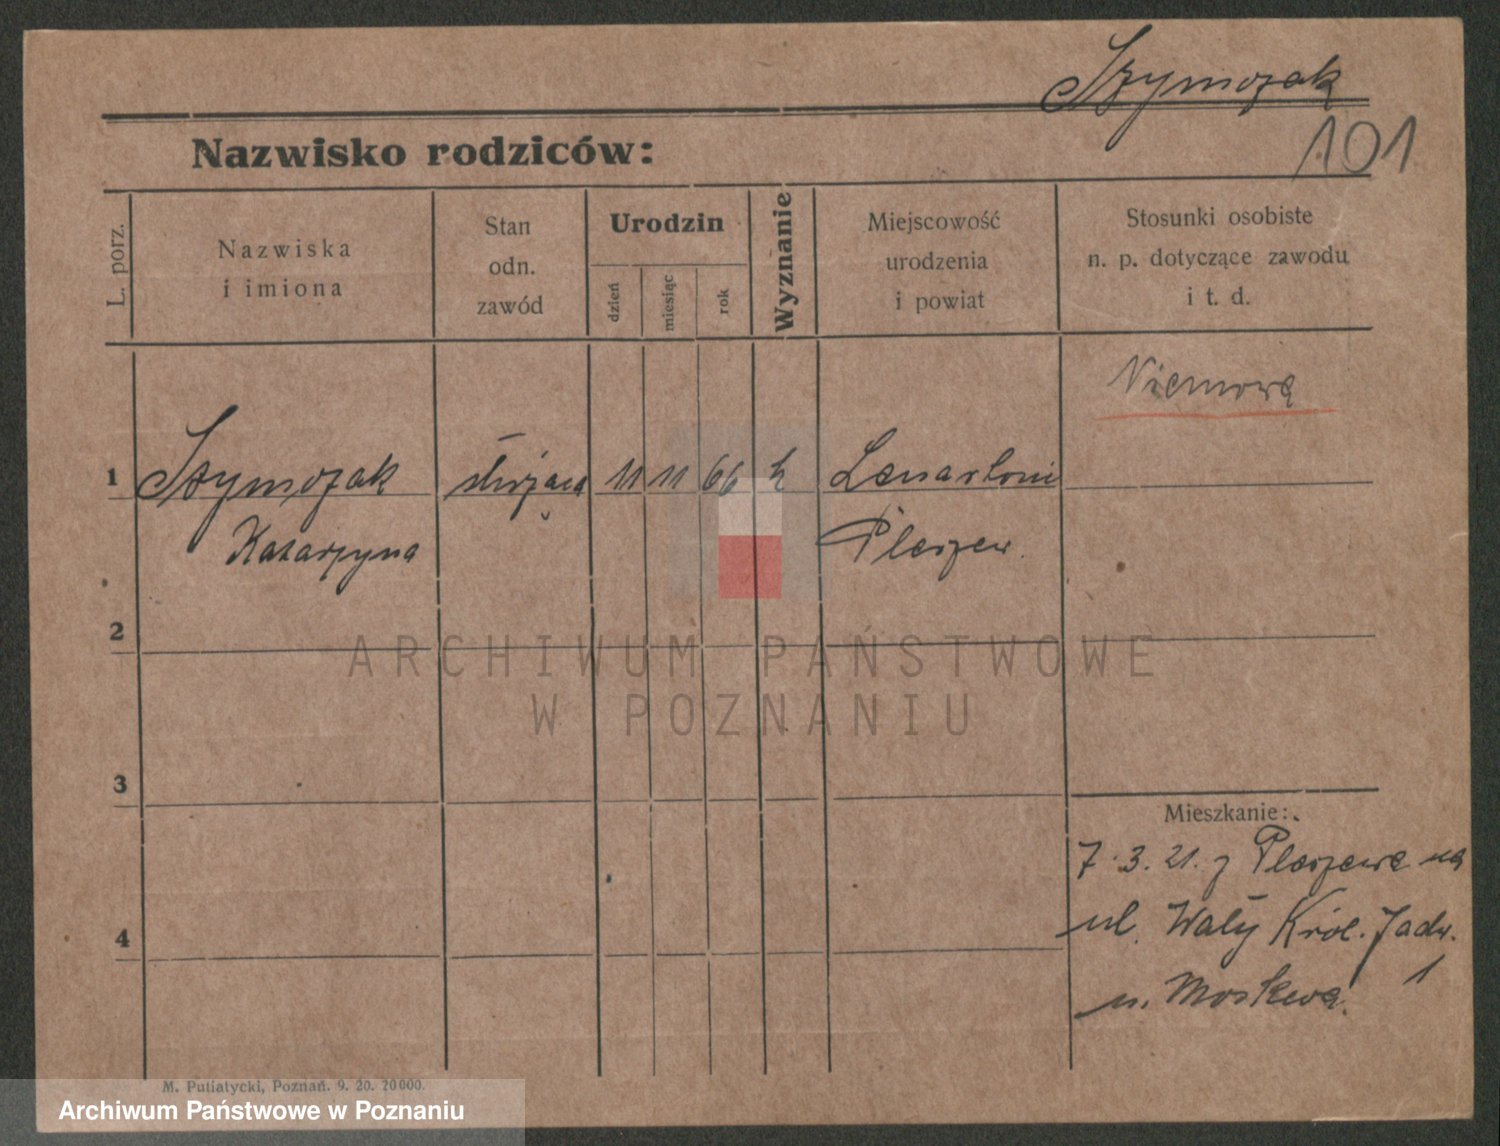 Szymczak
101
Nazwisko rodziców:
L. porz.
Nazwiska
i imiona
Stan
odn.
zawód
Urodzin
dzień
miesiąc
rok
Wyznanie
Miejscowość
urodzenia
i powiat
Stosunki osobiste
n. p. dotyczące zawodu
i t. d.
1
Szymczak
Katarzyna
służąca
11
11
66
k
Pleszew.
2
3
4
Mieszkanie:
7.3.21. z Pleszewa na
ul. Wały Król. Jadw.
1
u. Moskwa.
M. Putiatycki, Poznań. 9. 20. 20000.
ARCHIWUM PAŃSTWOWE
W POZNANIU
Archiwum Państwowe w Poznaniu